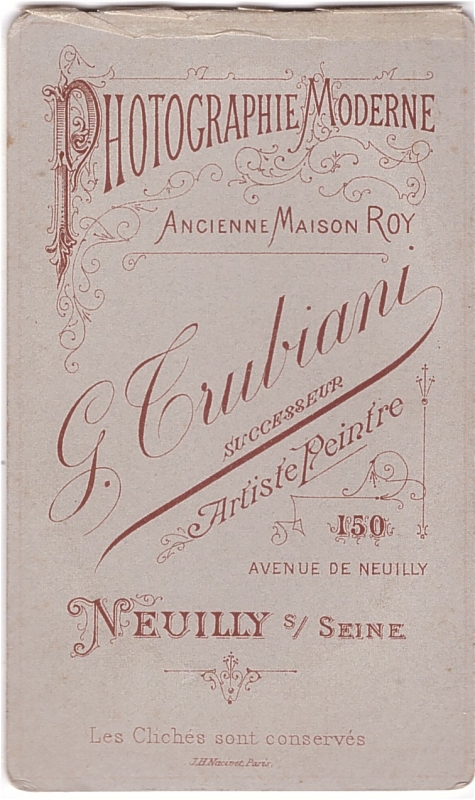 PHOTOGRAPHIE MODERNE
ANCIENNE MAISON ROY
G. Trubiani
SUCCESSEUR
Artiste Peintre
150
AVENUE DE NEUILLY
NEUILLY S/ SEINE
Les Clichés sont conservés
J.H. Nacivet, Paris.